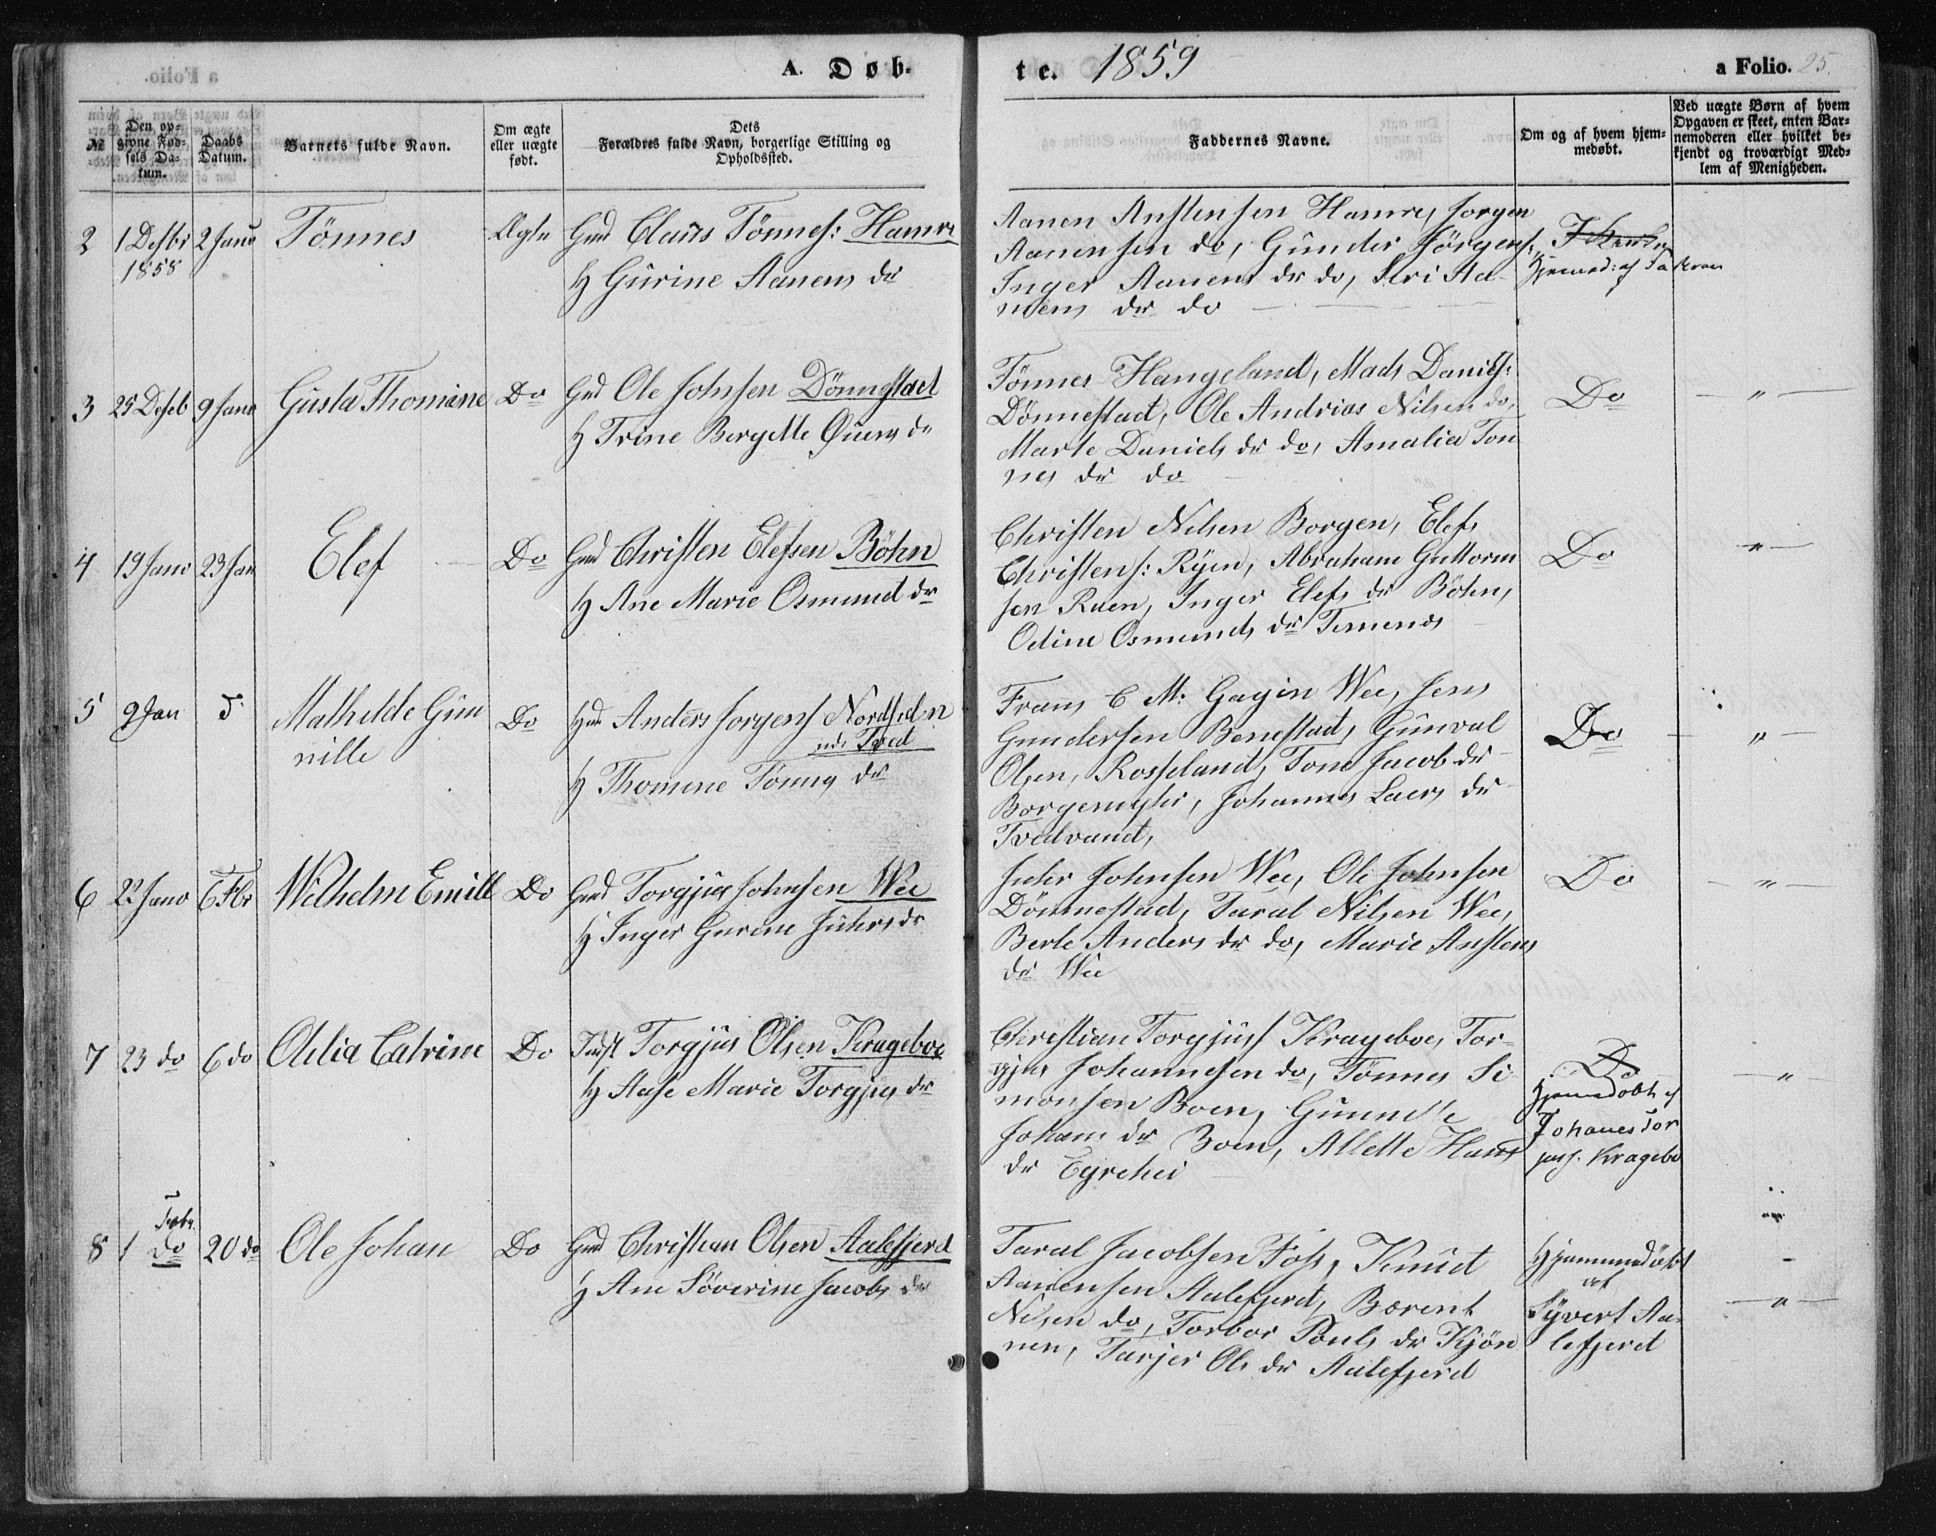 A. Døb-
te. 1859
a Folio. 25.
№
Den op-
givne Fød-
sels Da-
tum.
Daabs
Datum.
Barnets fulde Navn.
Om ægte
eller uægte
født.
Dets
Forældres fulde Navn, borgerlige Stilling og
Opholdssted.
Faddernes Navne.
Om og af hvem hjem-
medøbt.
Ved uægte Børn af hvem
Opgaven er skeet, enten Bar-
nemoderen eller hvilket be-
kjendt og troværdigt Med-
lem af Menigheden.
2 1 Desbr 2 Janu Tönnes Ægte Gmd Claus Tönnes: Hamre
1858
H Gurine Aanens dr
Aanen Anstensen Hamre, Jorgen
Aanensen do, Gunder Jörgens:
Inger Aanens dr do, Siri Aa-
nens dr do
Hjemed: af
3 25 Deseb 9 Janu Gusta Thomine Do Gmd Ole Johnsen Dönnestad
H Trine Bergitte Ouens dr
Tönnes Hangeland, Mads Daniels:
Dönnestad, Ole Andrias Nilsen do,
Marte Daniels dr do, Amalia Ton
nes dr do
Do - " -
4 19 Janu 23 Jan Elef Do Gmd Christen Elefsen Böhn
H Ane Marie Osmund dr
Christen Nilsen Borgen, Elefs
Christens: Ryen, Abraham Guttorm
sen Ruen, Inger Elefs dr Böhn,
Odine Osmunds dr
Do - " -
5 9 Jan d Mathilde Gun Do Hmd Anders Jorgens Nordsiden
nille
Tved
H Thomine Tönnes dr
Frans C M: Gagin Wee, Jens
Gundersen Benestad, Gunval
Olsen, Rosseland, Tone Jacob dr
Borgemyhr, Johanne Laers dr
Tvedvand,
Do - " -
6 22 Janu 6 Fbr Wilhelm Emill Do Gmd Torgjus Johnsen Wee
H Inger Gurine Juhrs dr
Juhr Johnsen Wee, Ole Johnsen
Dönnestad, Taral Nilsen Wee,
Berte Anders dr do, Marie Anstens
dr Wee
Do - " -
7 23 do 6 do Odelia Catrine Do Indst Torgjus Olsen Krageboe
H Aase Marie Torgjus dr
Christian Torgjus Krageboe, Tor-
gjus Johannesen do, Tönnes Si
monsen Boen, Gunnille
Johans dr Boen, Allette Hans
dr Eyrehei
Do
Hjemedöbt af
Johanes Tor
jus. Kragebo
- " -
8 1 Febr. do 20 do Ole Johan Do Gmd Christian Olsen Aalefjerd
H Ane Söverine Jacobs dr
Taral Jacobsen Foss, Knud
Aanensen Aalefjerd, Bærent
Nilsen do, Torbor Pouls dr Kjön
nen, Tarjer Ols dr Aalefjerd
Hjemmedöbt
af
Syvert Aa-
lefjerd
- " -